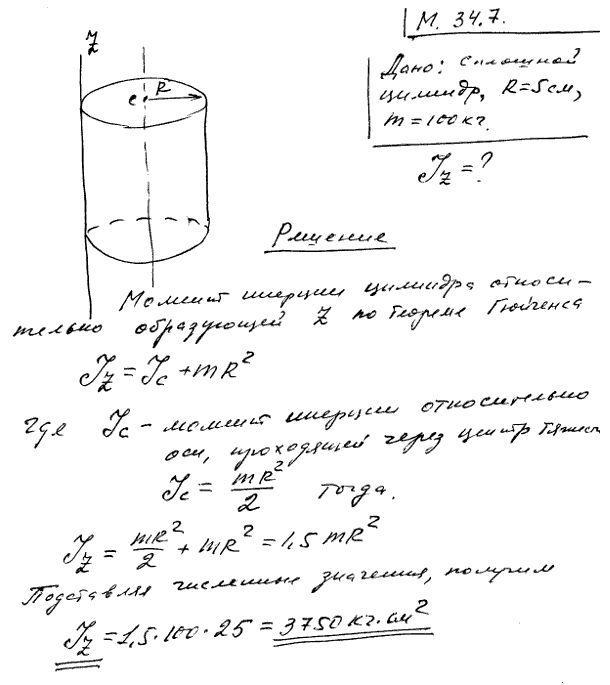 М. 34.7.
Дано: сплошной
цилиндр, R=5см,
m=100кг.
J_z=?
z
c R
Решение
Момент инерции цилиндра относи-
тельно образующей z по теореме Гюйгенса
J_z = J_c + mR²
где J_c – момент инерции относительно
оси, проходящей через центр тяжест
J_c = mR²/2 тогда.
J_z = mR²/2 + mR² = 1,5 mR²
Подставляя численные значения, получим
J_z = 1,5·100·25 = 3750 кг·см²